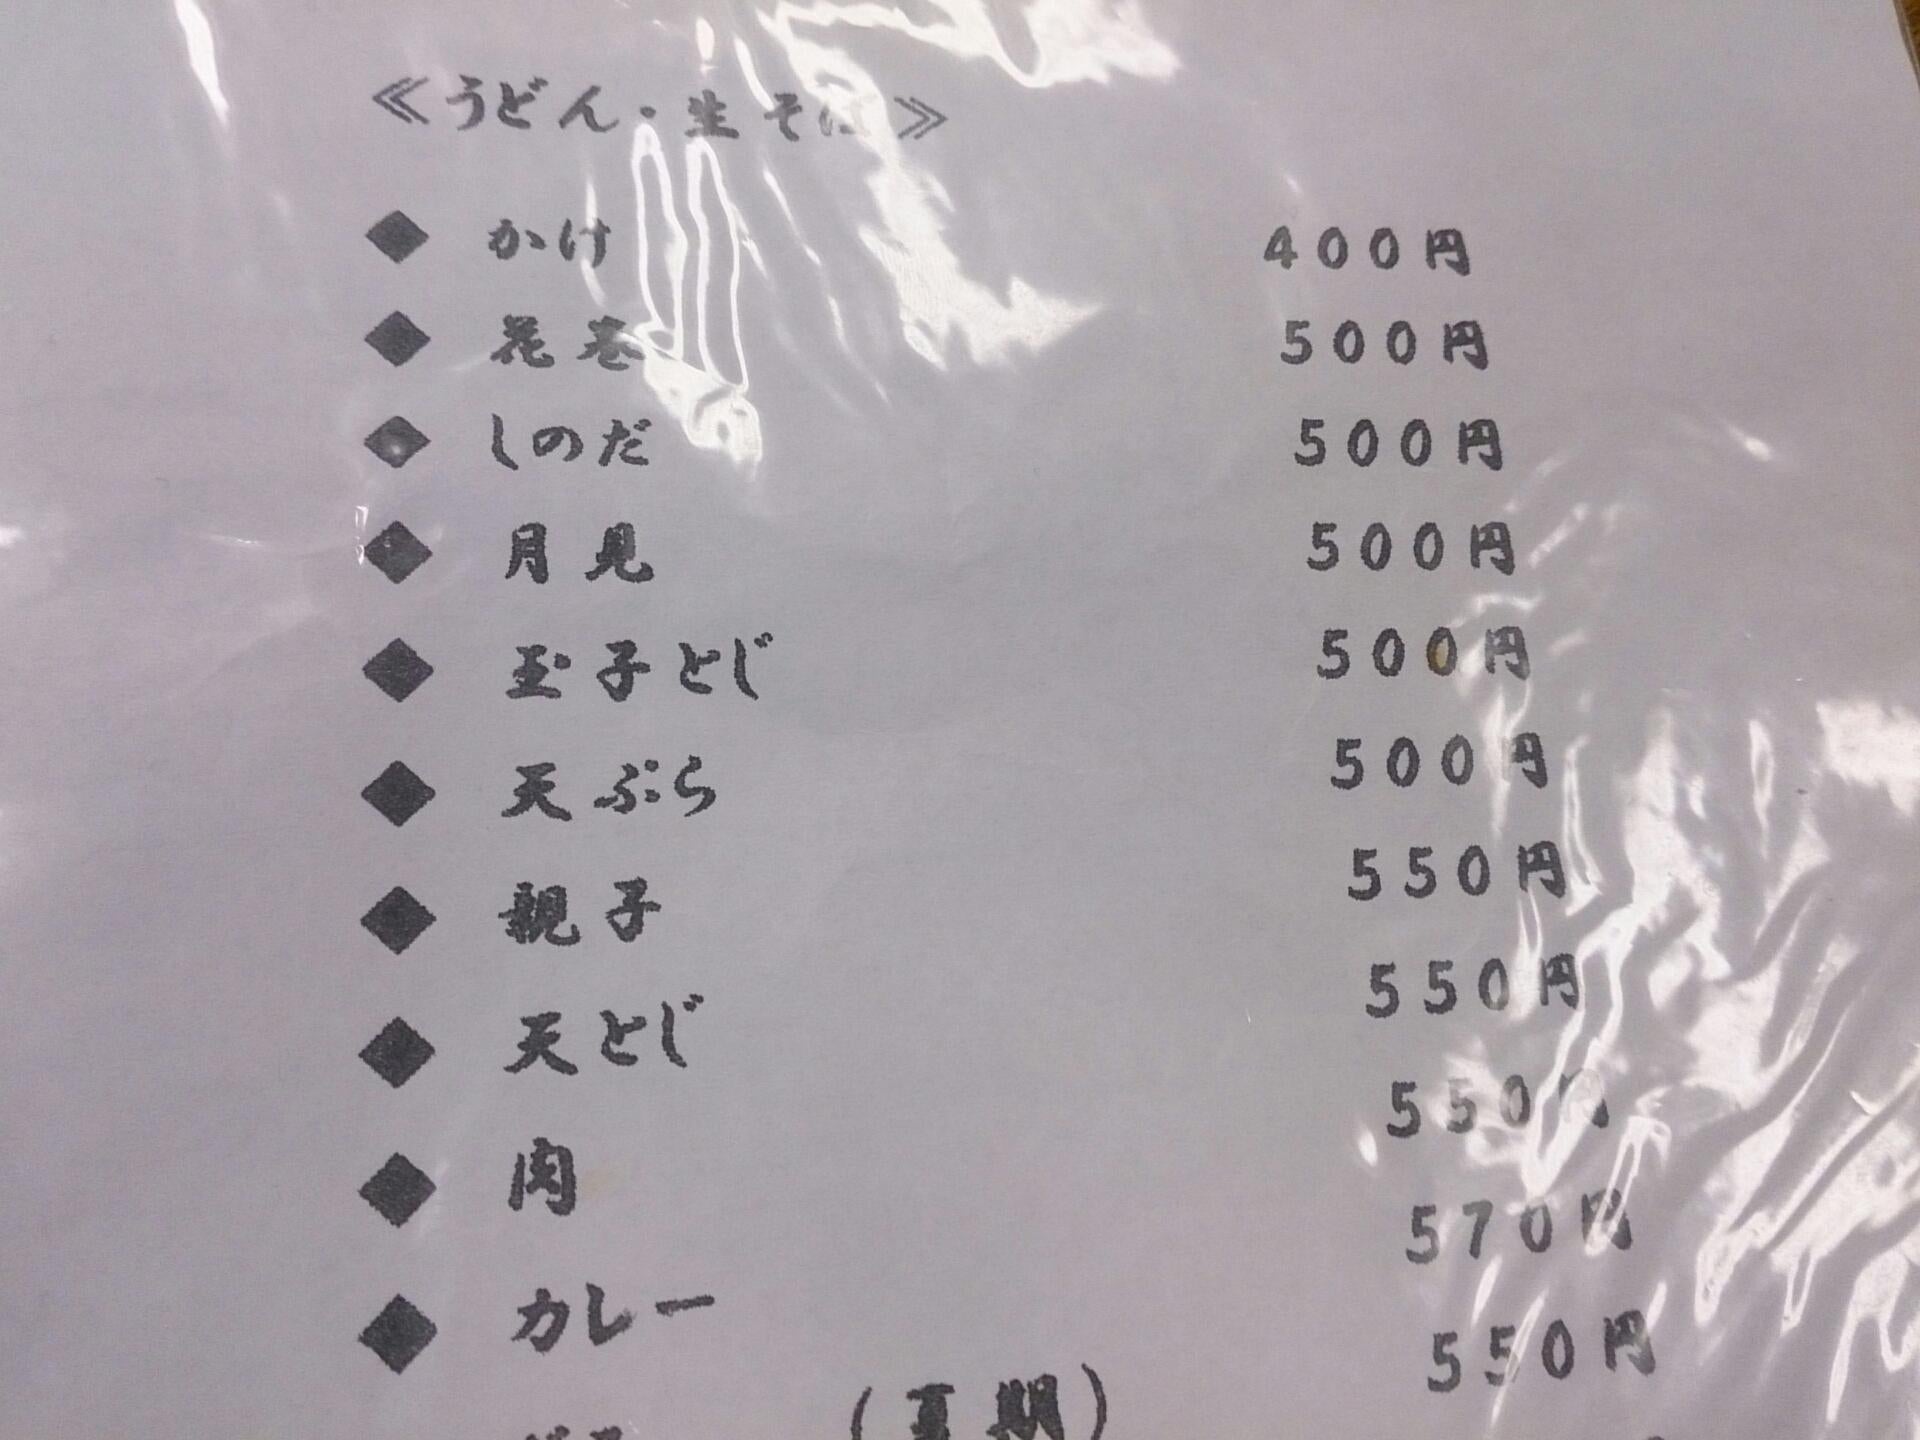 ≪うどん・生そば≫
◆ かけ 400円
◆ 花巻 500円
◆ しのだ 500円
◆ 月見 500円
◆ 玉子とじ 500円
◆ 天ぷら 500円
◆ 親子 550円
◆ 天とじ 550円
◆ 肉 550円
◆ カレー 570円
(夏期) 550円